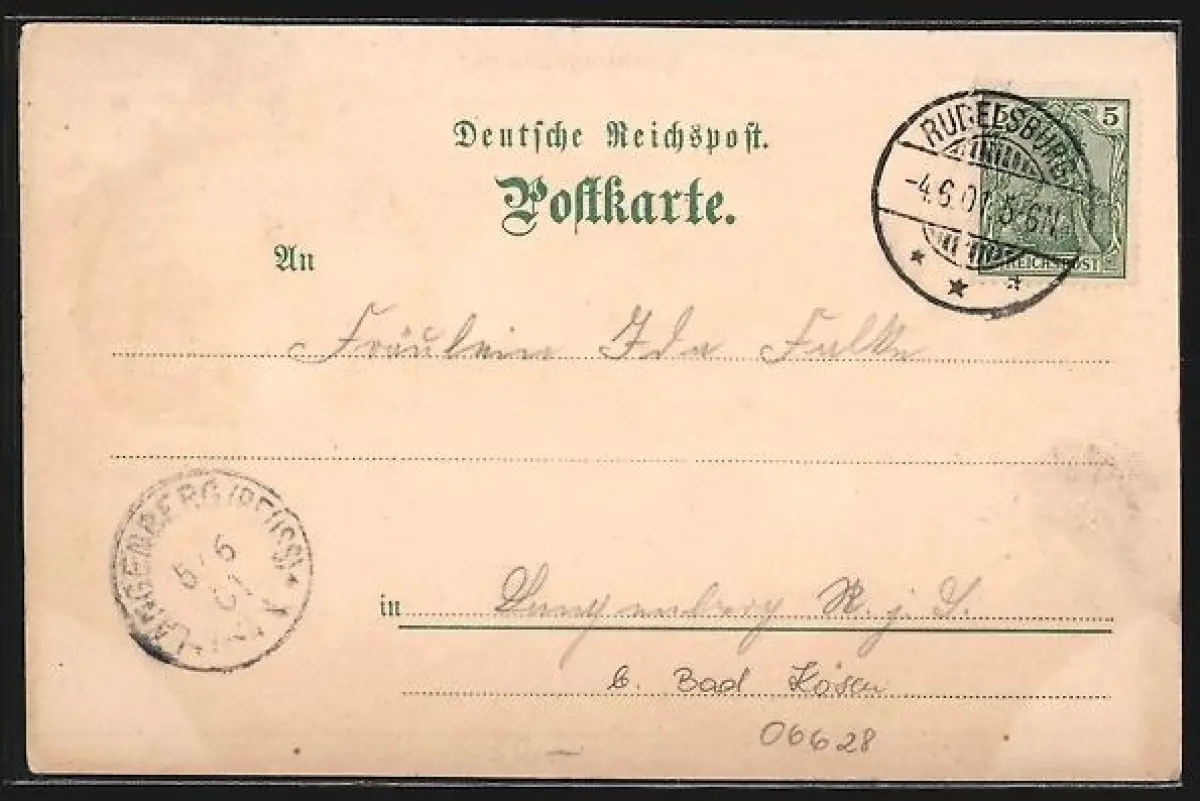 Deutsche Reichspost.
Postkarte.
RUDELSBURG
-4.6.01.5-6N.
5
REICHSPOST
An
Fräulein Ida Falke
LANGENBERG (REUSS) *
5 6
01
in Langenberg R. j. L.
b. Bad Kösen
06628